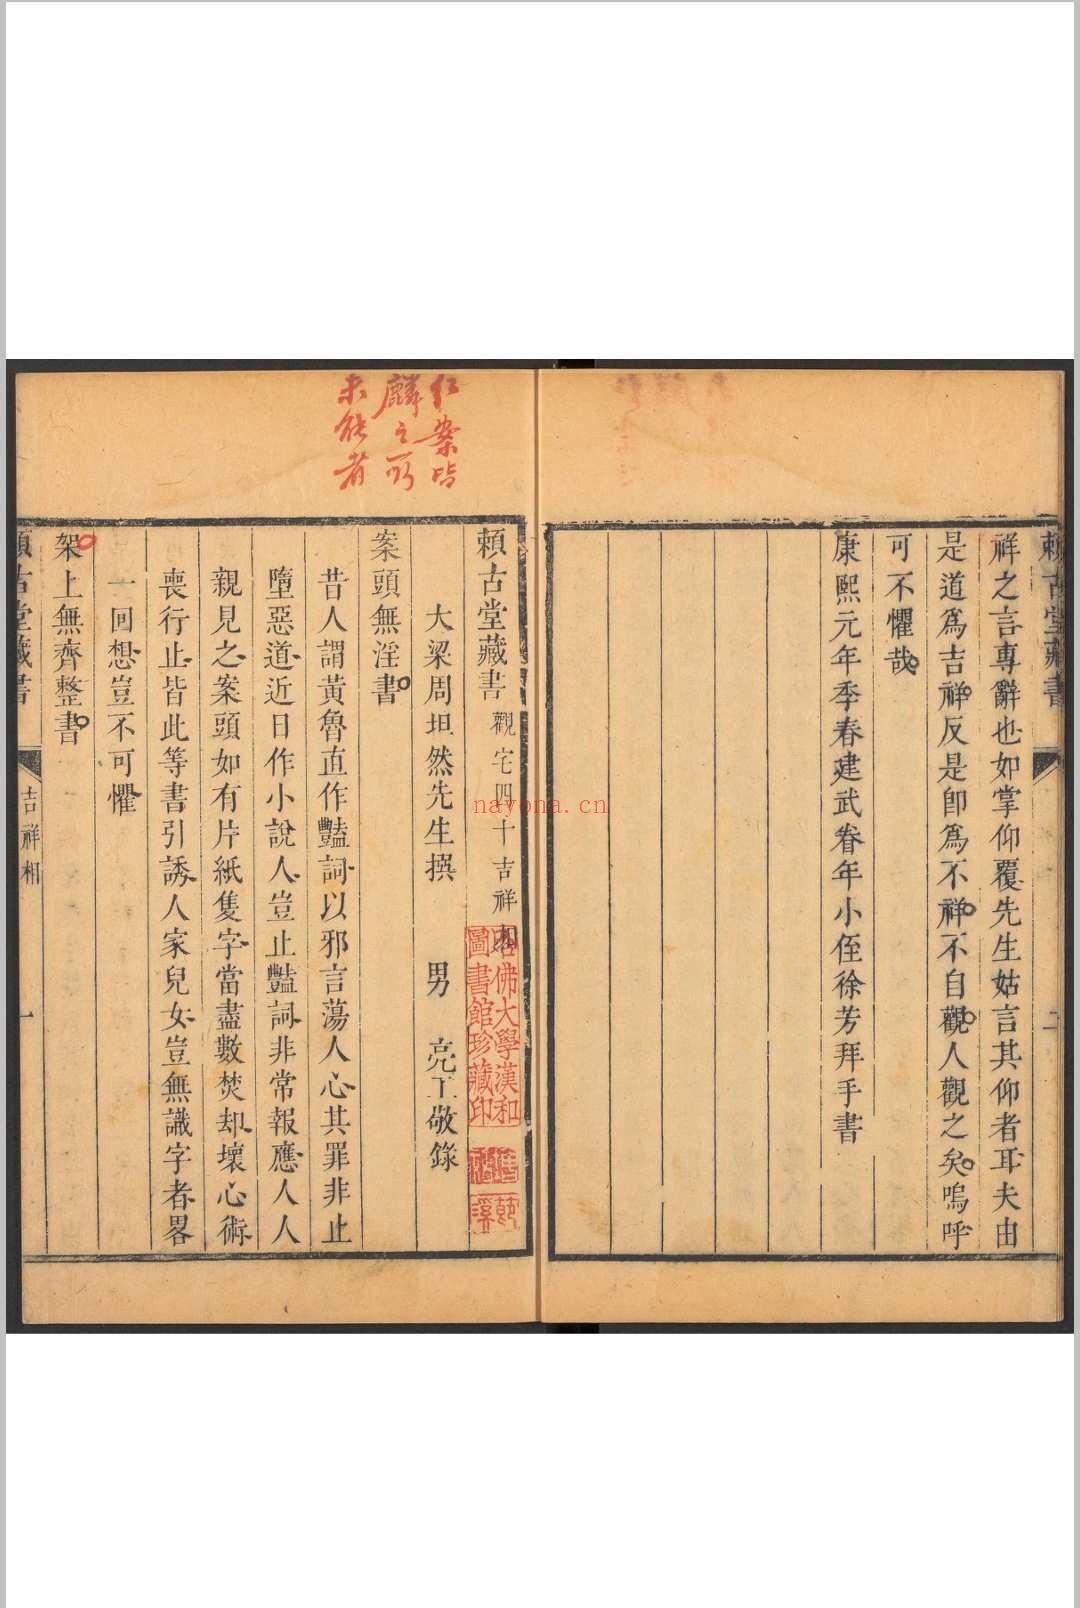 賴古堂藏書
二
祥之言專辭也如掌仰覆先生姑言其仰者耳夫由
是道爲吉祥反是卽爲不祥不自觀人觀之矣嗚呼
可不懼哉
康熙元年季春建武眷年小侄徐芳拜手書
賴古堂藏書 觀宅四十吉祥相
大梁周坦然先生撰 男 亮工敬錄
案頭無淫書
昔人謂黃魯直作豔詞以邪言蕩人心其罪非止
墮惡道近日作小說人豈止豔詞非常報應人人
親見之案頭如有片紙隻字當盡數焚却壞心術
喪行止皆此等書引誘人家兒女豈無識字者畧
一回想豈不可懼
架上無齊整書
賴古堂藏書
吉祥相
一
仁案皆
麟之所
未能者
哈佛大學漢和
圖書館珍藏印
nayona.cn